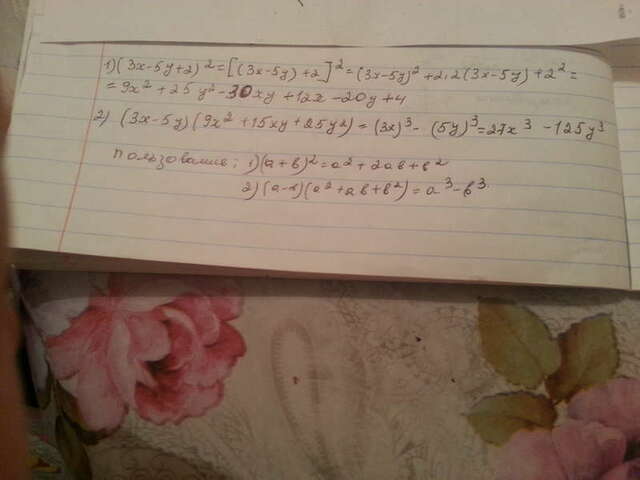 1) (3x-5y+2)²=[(3x-5y)+2]²=(3x-5y)²+2·2(3x-5y)+2²=
=9x²+25y²-30xy+12x-20y+4
2) (3x-5y)(9x²+15xy+25y²)=(3x)³-(5y)³=27x³-125y³
пользование: 1)(a+b)²=a²+2ab+b²
2)(a-b)(a²+ab+b²)=a³-b³.